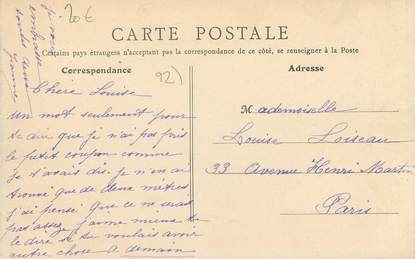 20€
Je vous
embrasse
toutes deux
Jeanne
CARTE POSTALE
Certains pays étrangers n'acceptant pas la correspondance de ce côté, se renseigner à la Poste
Correspondance
92)
Adresse
Chère Louise
un mot seulement pour
te dire que je n'ai pas pris
le petit coupon comme
je t'avais dis. je n'en ai
trouvé que de deux mètres
j'ai pensé que ce ne serait
pas assez j'aime mieux te
le dire si tu voulais avoir
autre chose à demain
Mademoiselle
Louise Loiseau
33 Avenue Henri Martin
Paris